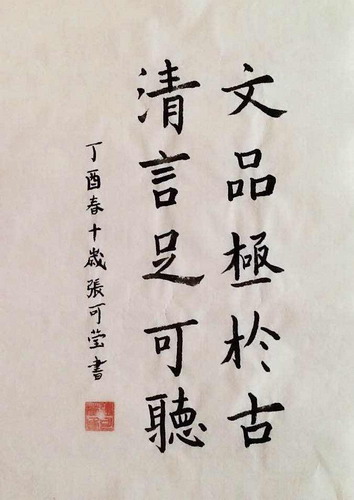 文品極於古
清言足可聽
丁酉春十歲張可莹書